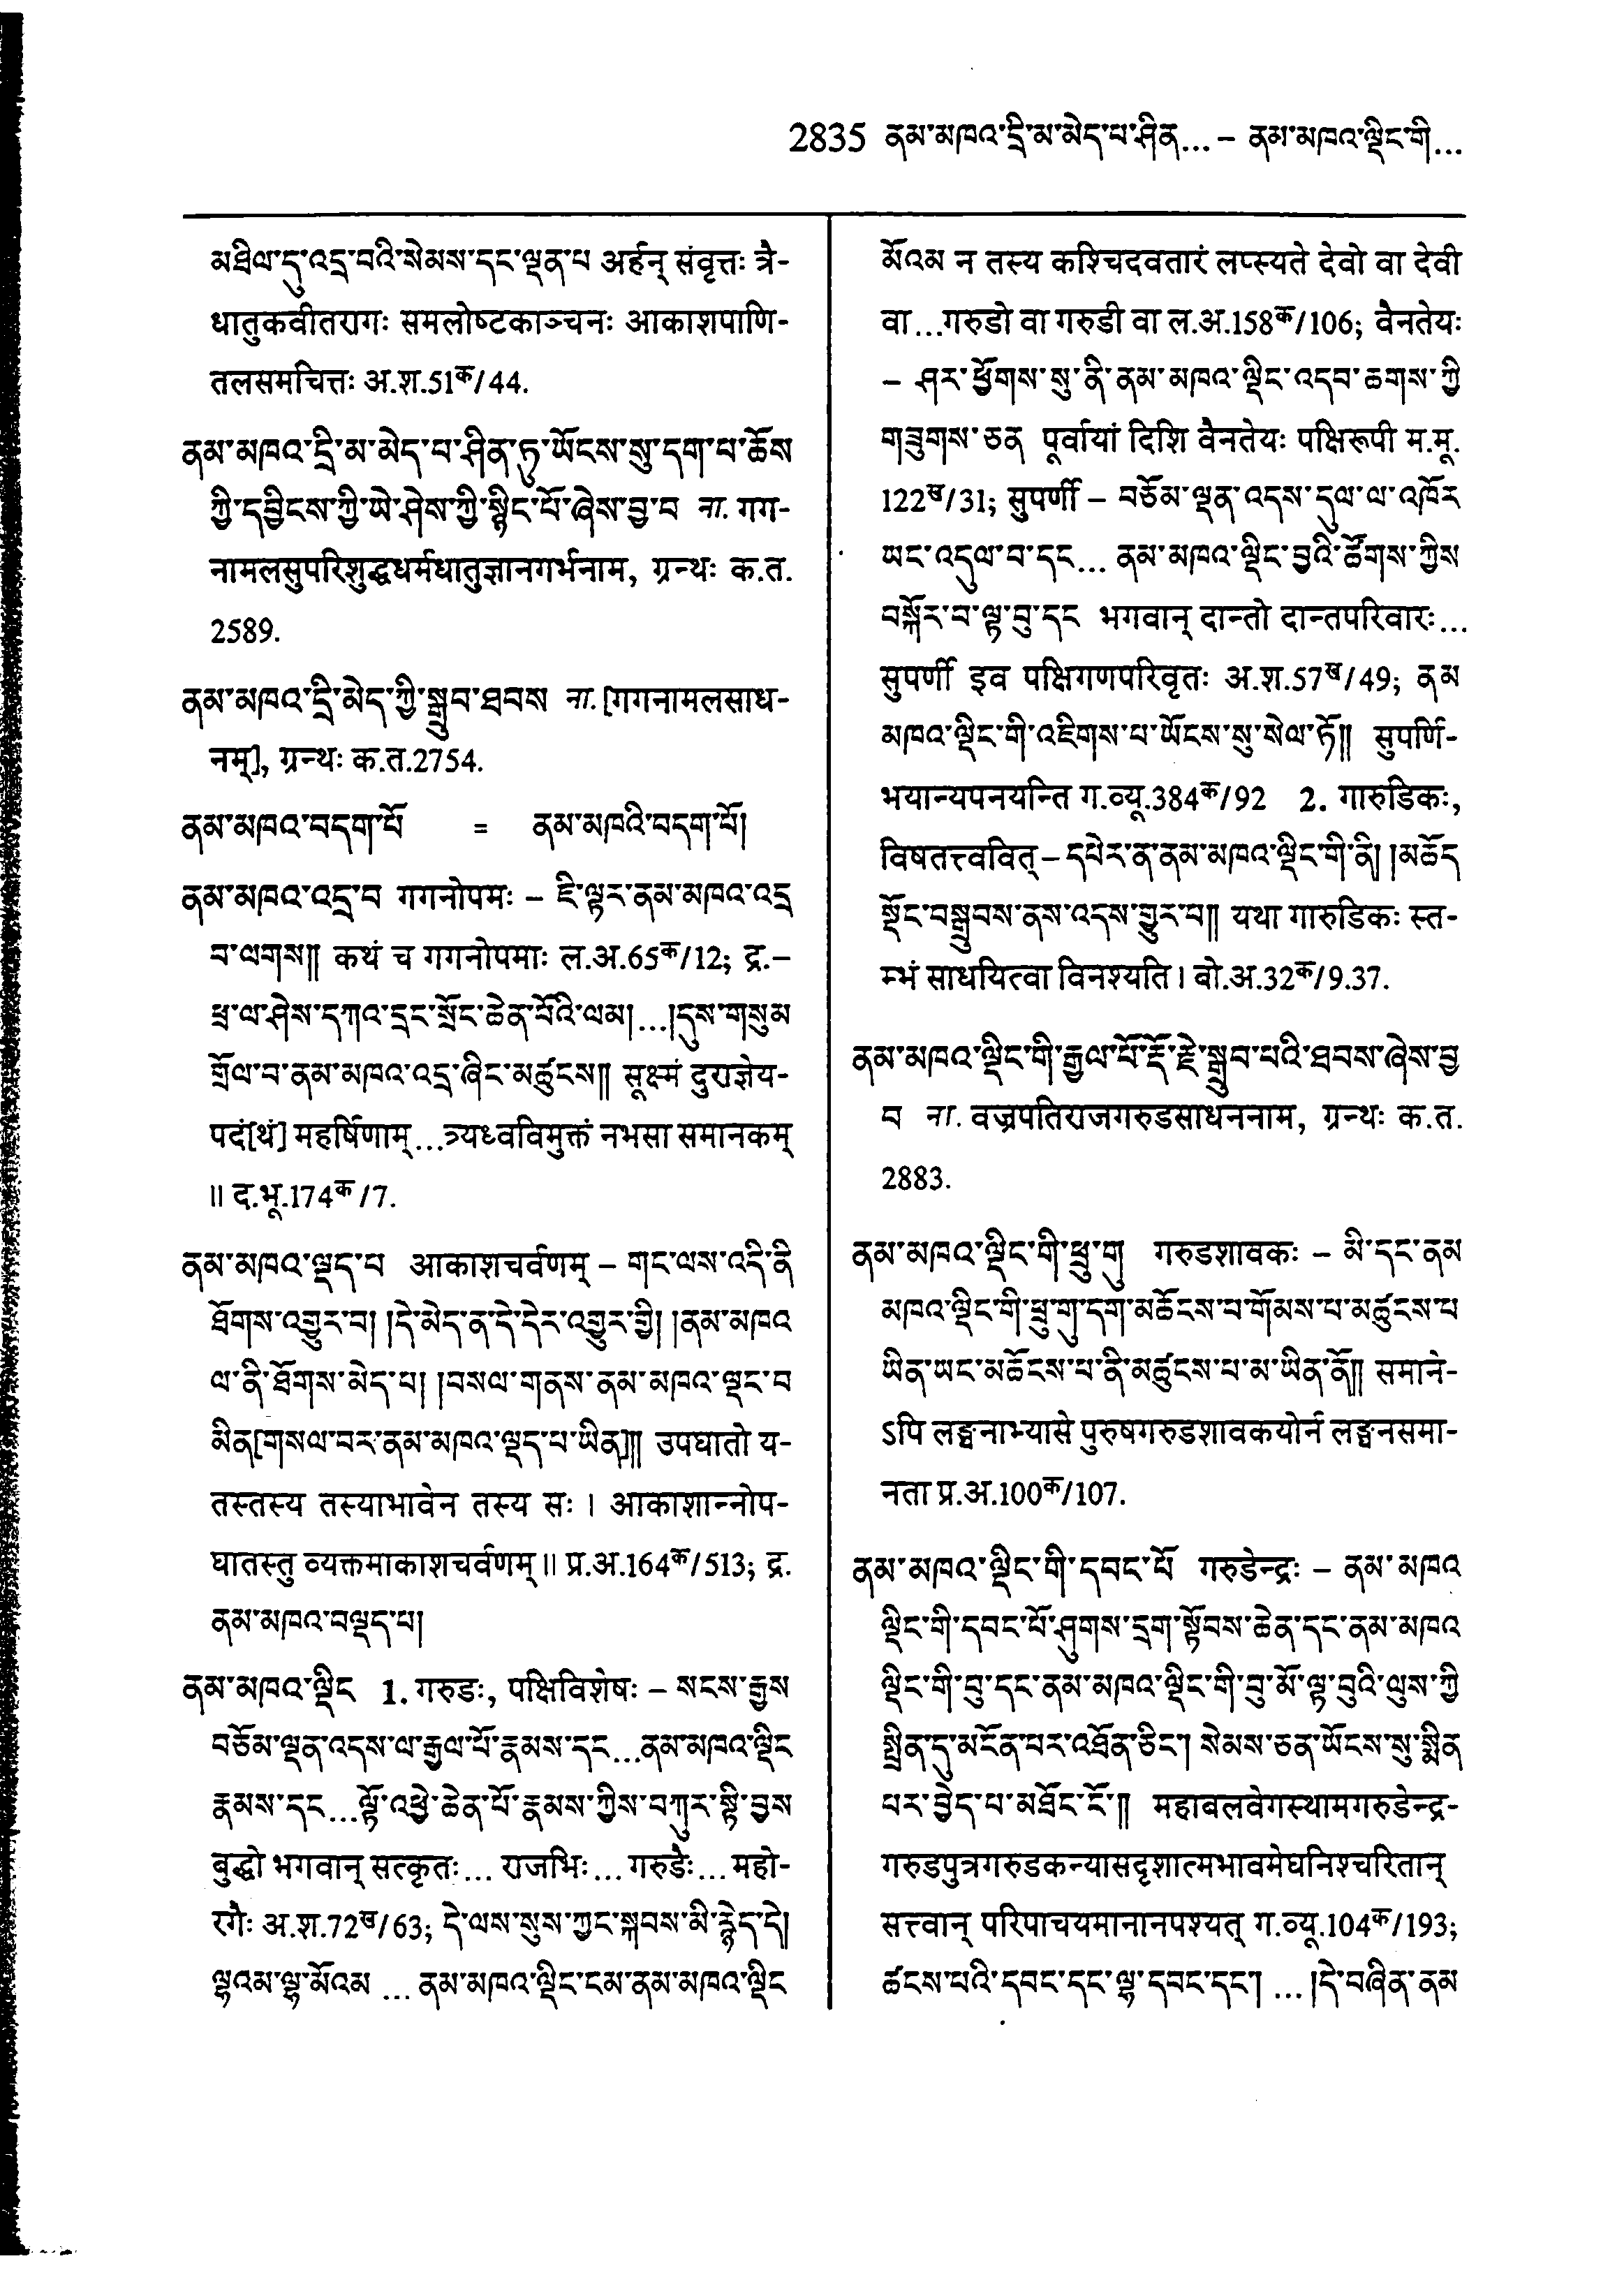 2835 ནམ་མཁའ་དྲི་མ་མེད་པ་ཤིན...– ནམ་མཁའ་ལྡིང་གི...
མཐིལ་དུ་འདྲ་བའི་སེམས་དང་ལྡན་པ अर्हन् संवृत्तः त्रै-
धातुकवीतरागः समलोष्टकाञ्चनः आकाशपाणि-
तलसमचित्तः अ.श.51क/44.
ནམ་མཁའ་དྲི་མ་མེད་པ་ཤིན་ཏུ་ཡོངས་སུ་དག་པ་ཆོས
ཀྱི་དབྱིངས་ཀྱི་ཡེ་ཤེས་ཀྱི་སྙིང་པོ་ཞེས་བྱ་བ ना. गग-
नामलसुपरिशुद्धधर्मधातुज्ञानगर्भनाम, ग्रन्थः क.त.
2589.
ནམ་མཁའ་དྲི་མེད་ཀྱི་སྒྲུབ་ཐབས ना. [गगनामलसाध-
नम्], ग्रन्थः क.त.2754.
ནམ་མཁའ་བདག་པོ = ནམ་མཁའི་བདག་པོ།
ནམ་མཁའ་འདྲ་བ गगनोपमः – ཇི་ལྟར་ནམ་མཁའ་འདྲ
བ་ལགས།། कथं च गगनोपमाः ल.अ.65क/12; द्र.–
ཕྲ་ལ་ཤེས་དཀའ་དྲང་སྲོང་ཆེན་པོའི་ལམ།...།དུས་གསུམ
གྲོལ་བ་ནམ་མཁའ་འདྲ་ཞིང་མཚུངས།། सूक्ष्मं दुराज्ञेय-
पदं[थं] महर्षिणाम्...त्र्यध्वविमुक्तं नभसा समानकम्
॥ द.भू.174क/7.
ནམ་མཁའ་ལྡད་པ आकाशचर्वणम् – གང་ལས་འདི་ནི
ཐོགས་འགྱུར་བ། །དེ་མེད་ན་དེ་དེར་འགྱུར་གྱི། །ནམ་མཁའ
ལ་ནི་ཐོགས་མེད་པ། །བསལ་གནས་ནམ་མཁའ་ལྡང་བ
མིན[གསལ་བར་ནམ་མཁའ་ལྡད་པ་ཡིན]།། उपघातो य-
तस्तस्य तस्याभावेन तस्य सः । आकाशान्नोप-
घातस्तु व्यक्तमाकाशचर्वणम् ॥ प्र.अ.164क/513; द्र.
ནམ་མཁའ་བལྡད་པ།
ནམ་མཁའ་ལྡིང 1. गरुडः, पक्षिविशेषः – སངས་རྒྱས
བཅོམ་ལྡན་འདས་ལ་རྒྱལ་པོ་རྣམས་དང...ནམ་མཁའ་ལྡིང
རྣམས་དང...ལྟོ་འཕྱེ་ཆེན་པོ་རྣམས་ཀྱིས་བཀུར་སྟི་བྱས
बुद्धो भगवान् सत्कृतः... राजभिः... गरुडैः... महो-
रगैः अ.श.72ख/63; དེ་ལས་སུས་ཀྱང་སྐབས་མི་རྙེད་དེ།
ལྷའམ་ལྷ་མོའམ ... ནམ་མཁའ་ལྡིང་ངམ་ནམ་མཁའ་ལྡིང
མོའམ न तस्य कश्चिदवतारं लप्स्यते देवो वा देवी
वा...गरुडो वा गरुडी वा ल.अ.158क/106; वैनतेयः
– ཤར་ཕྱོགས་སུ་ནི་ནམ་མཁའ་ལྡིང་འདབ་ཆགས་ཀྱི
གཟུགས་ཅན पूर्वायां दिशि वैनतेयः पक्षिरूपी म.मू.
122ख/31; सुपर्णी – བཅོམ་ལྡན་འདས་དུལ་ལ་འཁོར
ཡང་འདུལ་བ་དང... ནམ་མཁའ་ལྡིང་བྱའི་ཚོགས་ཀྱིས
བསྐོར་བ་ལྟ་བུ་དང भगवान् दान्तो दान्तपरिवारः...
सुपर्णी इव पक्षिगणपरिवृतः अ.श.57ख/49; ནམ
མཁའ་ལྡིང་གི་འཇིགས་པ་ཡོངས་སུ་སེལ་ཏོ།། सुपर्णि-
भयान्यपनयन्ति ग.व्यू.384क/92 2. गारुडिकः,
विषतत्त्ववित् – དཔེར་ན་ནམ་མཁའ་ལྡིང་གི་ནི། །མཆོད
སྡོང་བསྒྲུབས་ནས་འདས་གྱུར་བ།། यथा गारुडिकः स्त-
म्भं साधयित्वा विनश्यति । बो.अ.32क/9.37.
ནམ་མཁའ་ལྡིང་གི་རྒྱལ་པོ་རྡོ་རྗེ་སྒྲུབ་པའི་ཐབས་ཞེས་བྱ
བ ना. वज्रपतिराजगरुडसाधननाम, ग्रन्थः क.त.
2883.
ནམ་མཁའ་ལྡིང་གི་ཕྲུ་གུ गरुडशावकः – མི་དང་ནམ
མཁའ་ལྡིང་གི་ཕྲུ་གུ་དག་མཆོངས་བ་གོམས་པ་མཚུངས་པ
ཡིན་ཡང་མཆོངས་པ་ནི་མཚུངས་པ་མ་ཡིན་ནོ།། समाने-
ऽपि लङ्घनाभ्यासे पुरुषगरुडशावकयोर्न लङ्घनसमा-
नता प्र.अ.100क/107.
ནམ་མཁའ་ལྡིང་གི་དབང་པོ गरुडेन्द्रः – ནམ་མཁའ
ལྡིང་གི་དབང་པོ་ཤུགས་དྲག་སྟོབས་ཆེན་དང་ནམ་མཁའ
ལྡིང་གི་བུ་དང་ནམ་མཁའ་ལྡིང་གི་བུ་མོ་ལྟ་བུའི་ལུས་ཀྱི
སྤྲིན་དུ་མངོན་པར་འཐོན་ཅིང་། སེམས་ཅན་ཡོངས་སུ་སྨིན
པར་བྱེད་པ་མཐོང་ངོ་།། महाबलवेगस्थामगरुडेन्द्र-
गरुडपुत्रगरुडकन्यासदृशात्मभावमेघनिश्चरितान्
सत्त्वान् परिपाचयमानानपश्यत् ग.व्यू.104क/193;
ཚངས་པའི་དབང་དང་ལྷ་དབང་དང་། ... །དེ་བཞིན་ནམ